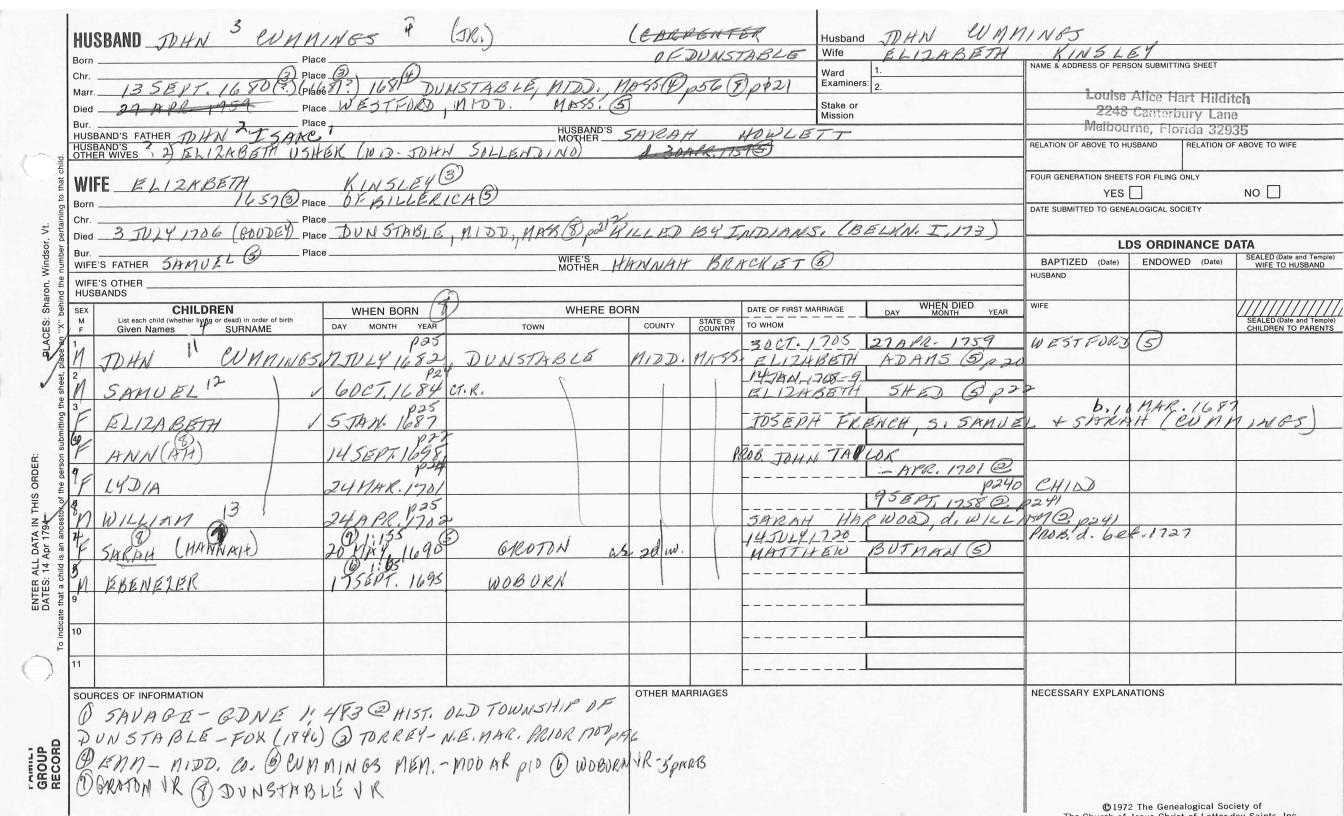 HUSBAND JOHN 3 CUMMINGS (JR.) (CARPENTER
Born Place OF DUNSTABLE
Chr. Place
Marr. 13 SEPT. 1680 Place 1681 DUNSTABLE, MIDD., MASS (4) p56 (8) p121
Died 27 APR 1759 Place WESTFORD, MIDD. MASS. (5)
Bur. Place
HUSBAND'S FATHER JOHN 2 ISAAC 1 HUSBAND'S MOTHER SARAH HOWLETT
HUSBAND'S OTHER WIVES 2) ELIZABETH USHER (WID. JOHN SOLLENDINO) d 30 APR. 1759 (5)
Husband JOHN CUMMINGS
Wife ELIZABETH KINSLEY
Ward Examiners: 1.
2.
Stake or Mission
NAME & ADDRESS OF PERSON SUBMITTING SHEET
Louise Alice Hart Hilditch
2248 Canterbury Lane
Melbourne, Florida 32935
RELATION OF ABOVE TO HUSBAND RELATION OF ABOVE TO WIFE
FOUR GENERATION SHEETS FOR FILING ONLY
YES NO
DATE SUBMITTED TO GENEALOGICAL SOCIETY
WIFE ELIZABETH KINSLEY (3)
Born 1657 (3) Place OF BILLERICA (5)
Chr. Place
Died 3 JULY 1706 (GOUDEY) Place DUNSTABLE, MIDD, MASS (8) p212 KILLED BY INDIANS. (BELKN. I, 173)
Bur. Place
WIFE'S FATHER SAMUEL (5) WIFE'S MOTHER HANNAH BRACKET (5)
WIFE'S OTHER HUSBANDS
LDS ORDINANCE DATA
BAPTIZED (Date) ENDOWED (Date) SEALED (Date and Temple) WIFE TO HUSBAND
HUSBAND
WIFE
SEALED (Date and Temple) CHILDREN TO PARENTS
SEX M F CHILDREN WHEN BORN WHERE BORN DATE OF FIRST MARRIAGE WHEN DIED
List each child (whether living or dead) in order of birth
Given Names SURNAME DAY MONTH YEAR TOWN COUNTY STATE OR COUNTRY TO WHOM DAY MONTH YEAR
p25 3 OCT. 1705 27 APR. 1759 WESTFORD (5)
1 M JOHN 11 CUMMINGS 7 JULY 1682 DUNSTABLE MIDD. MASS. ELIZABETH ADAMS (5) p20
p24 14 JAN. 1708-9
2 M SAMUEL 12 6 OCT. 1684 CT. R. ELIZABETH SHED (5) p22
p25 b. 10 MAR. 1687
3 F ELIZABETH 5 JAN. 1687 JOSEPH FRENCH, S. SAMUEL + SARAH (CUMMINGS)
F ANN (AH) 14 SEPT. 1698 PROB JOHN TAYLOR
– APR. 1701 (2)
F LYDIA 24 MAR. 1701 p240 CHILD
p25 9 SEPT. 1758 (2) p241
M WILLIAM 13 24 APR. 1702 SARAH HARWOOD, d. WILLIAM (2) p241
14 JULY 1720 PROB. d. bef. 1727
F SARAH (HANNAH) 20 MAY 1690 GROTON MATTHEW BUTMAN (5)
M EBENEZER 17 SEPT. 1695 WOBURN
9
10
11
SOURCES OF INFORMATION
(1) SAVAGE – GDNE 1: 483 (2) HIST. OLD TOWNSHIP OF
DUNSTABLE – FOX (1846) (3) TORREY – N.E. MAR. PRIOR 1700 p96
(4) EMM – MIDD. CO. (5) CUMMINGS MEM. – MOOAR p10 (6) WOBURN VR
(7) GROTON VR (8) DUNSTABLE VR
OTHER MARRIAGES
NECESSARY EXPLANATIONS
©1972 The Genealogical Society of
The Church of Jesus Christ of Latter-day Saints, Inc.
ENTER ALL DATA IN THIS ORDER:
DATES: 14 Apr 1794 PLACES: Sharon, Windsor, Vt.
To indicate that a child is an ancestor of the person submitting the sheet, place an "X" behind the number pertaining to that child.
FAMILY GROUP RECORD